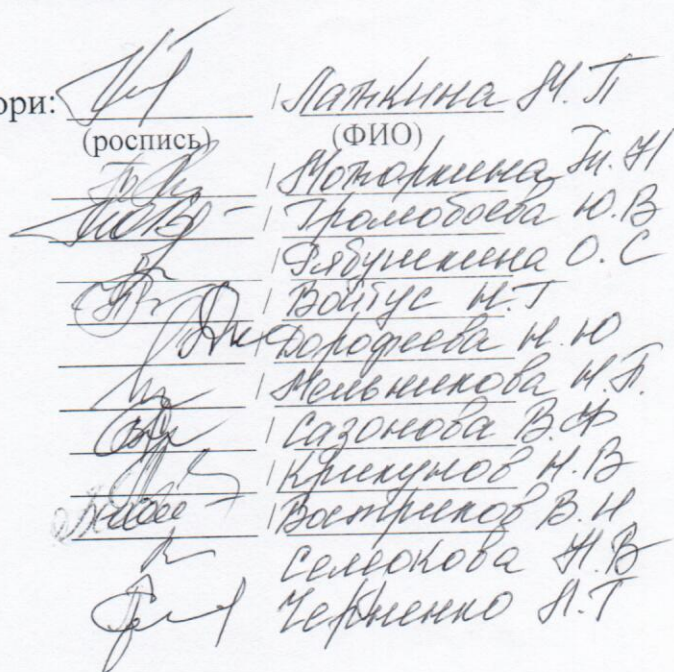 ори: / Лапкина М. П
(роспись) (ФИО)
/ Моторкина Т. Н
/ Громобоева Ю. В
/ Рябушкина О. С
/ Войтус Н. Г
/ Дорофеева Н. Ю
/ Мельникова Н. П.
/ Сазонова В. Ф
/ Крикунов Н. В
/ Востриков В. Н
Семокова Н. В
Черненко Н. Г